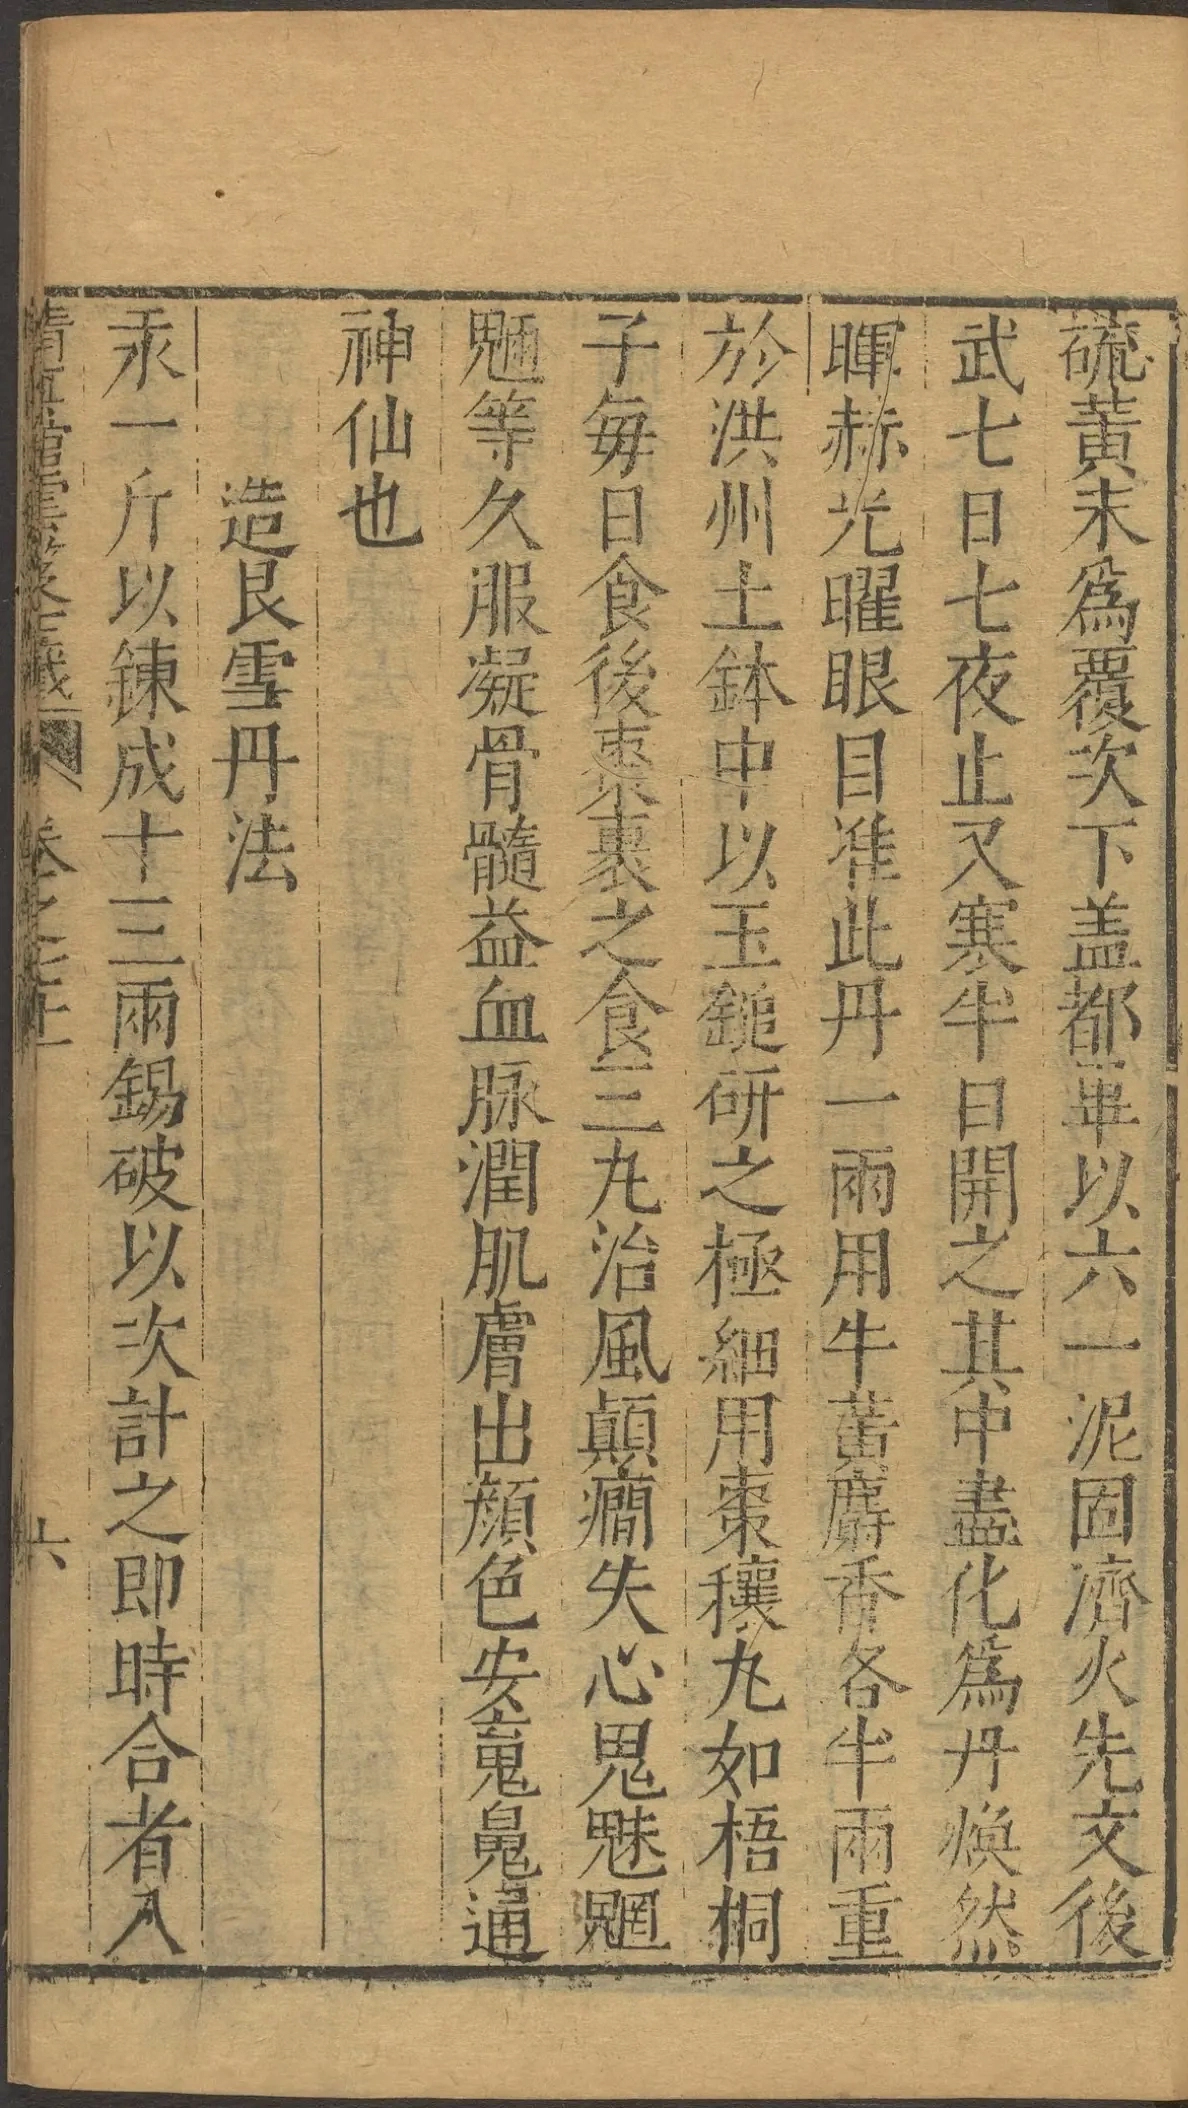 硫黃末爲覆次下盖都畢以六一泥固濟火先文後
武七日七夜止又寒半日開之其中盡化爲丹煥然
暉赫光曜眼目准此丹一兩用牛黃麝香各半兩重
於洪州土鉢中以玉鎚研之極細用棗穰丸如梧桐
子每日食後棗裹之食三丸治風顛癇失心鬼魅魍
魎等久服凝骨髓益血脉潤肌膚出顔色安䰟鬼通
神仙也
造艮雪丹法
汞一斤以鍊成十三兩錫破以次計之即時合者入
清眞舘雲笈七籤 卷之七十 六